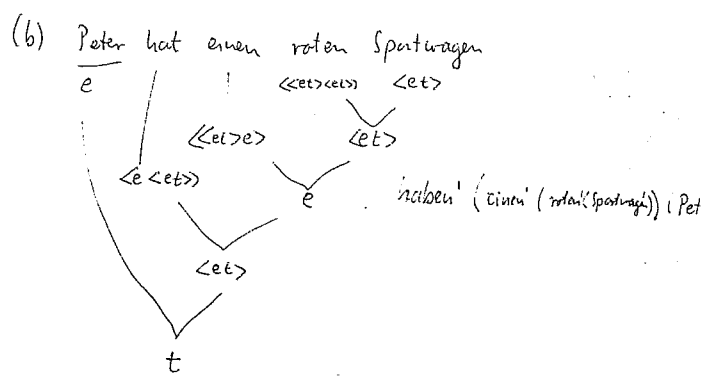 (b) Peter hat einen roten Sportwagen
e <<et><et>> <et>
<<et>e> <et>
<e<et>>
e haben' (einen' (roten'(Sportwagen')) , Pet
<et>
t